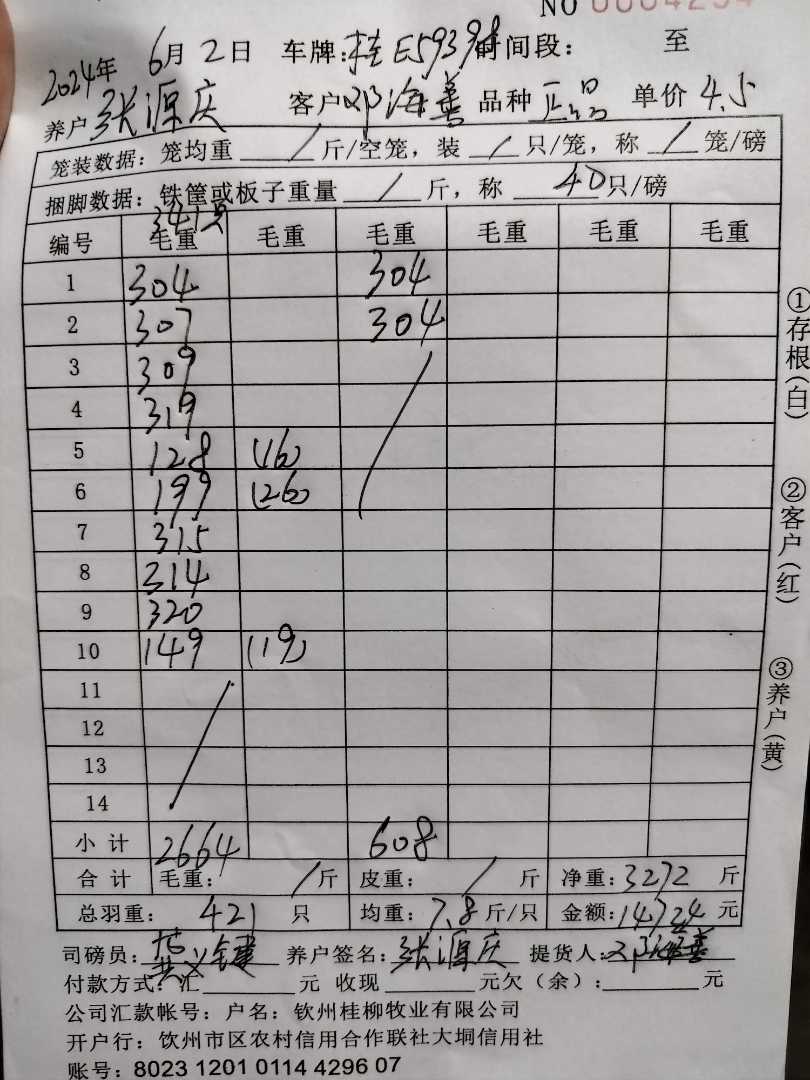 NO 0004294
2024年 6月2日 车牌:桂E59398 时间段: 至
养户 张源庆 客户 邓海善 品种 正品 单价 4.5
笼装数据: 笼均重 / 斤/空笼, 装 / 只/笼, 称 / 笼/磅
捆脚数据: 铁筐或板子重量 / 斤, 称 40只/磅
341只
编号 毛重 毛重 毛重 毛重 毛重 毛重
1 304 304
2 307 304
3 309
4 319
5 128 (16)
6 199 (26)
7 315
8 314
9 320
10 149 (19)
11
12
13
14
小计 2664 608
合计 毛重: / 斤 皮重: / 斤 净重: 3272 斤
总羽重: 421 只 均重: 7.8 斤/只 金额: 14724 元
司磅员: 义键 养户签名: 张源庆 提货人: 邓海善
付款方式: 汇 元 收现 元欠(余): 元
公司汇款帐号: 户名: 钦州桂柳牧业有限公司
开户行: 饮州市区农村信用合作联社大垌信用社
账号: 8023 1201 0114 4296 07
①存根(白)
②客户(红)
③养户(黄)